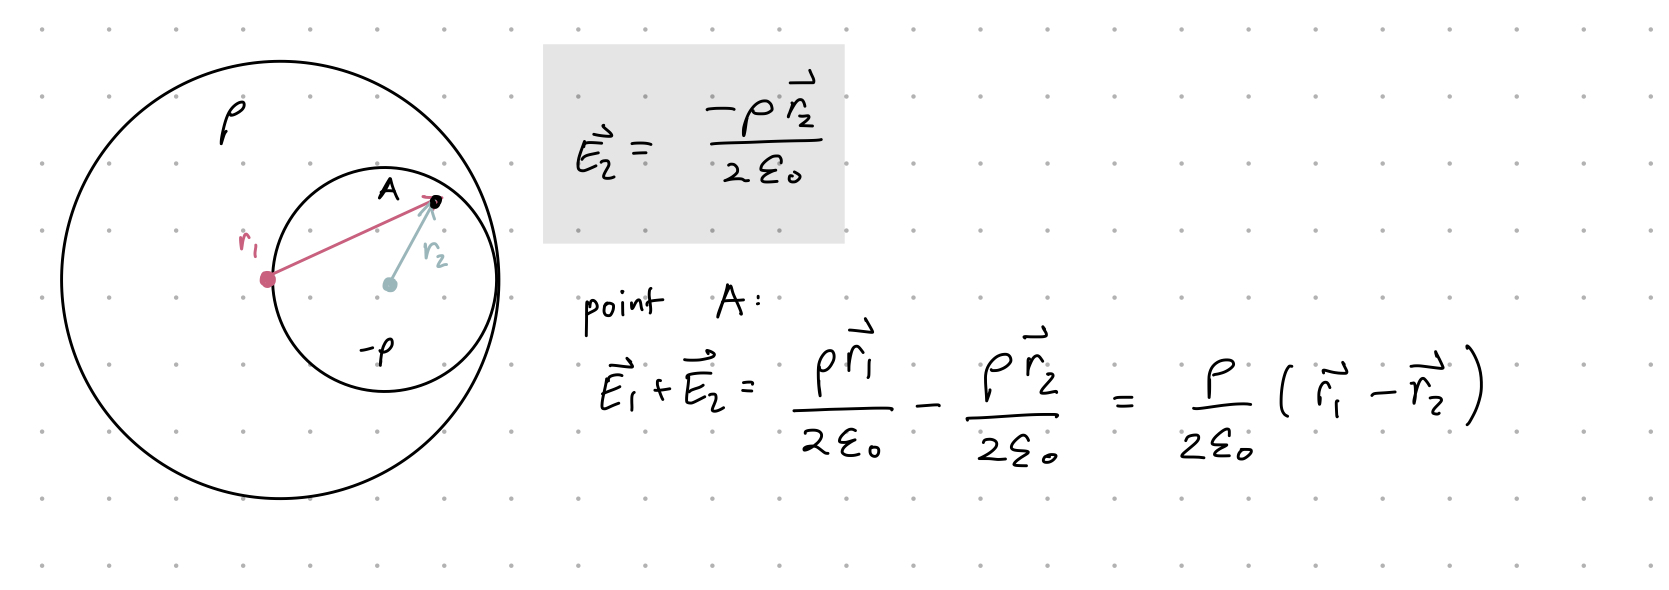 ρ
A
r₁
r₂
-ρ
E⃗₂ = -ρr⃗₂ / 2ε₀
point A:
E⃗₁ + E⃗₂ = ρr⃗₁ / 2ε₀ - ρr⃗₂ / 2ε₀ = ρ / 2ε₀ (r⃗₁ - r⃗₂)